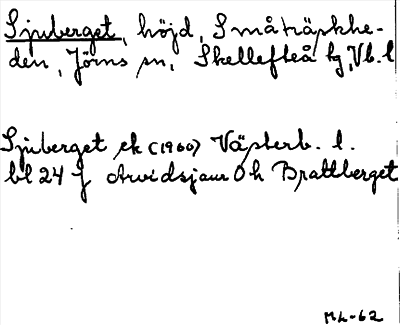 Sjuberget, höjd, Småträskhe-
den, Jörns sn, Skellefteå tg, Vb. l
Sjuberget ek (1960) Västerb. l.
bl 24 J Arvidsjaur Ö h Brattberget
ML-62